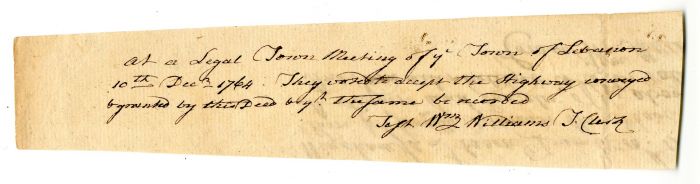 At a Legal Town Meeting of yͤ Town of Lebanon
10th Decr 1764. They voted to accept the Highway conveyed
& granted by this Deed & yt the same be recorded
Test Wm Williams T. Clerk